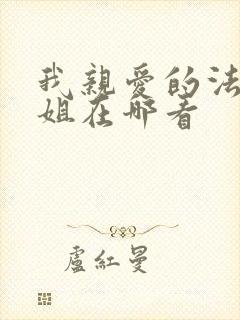 我親愛的法
姐在哪看
盧紅曼